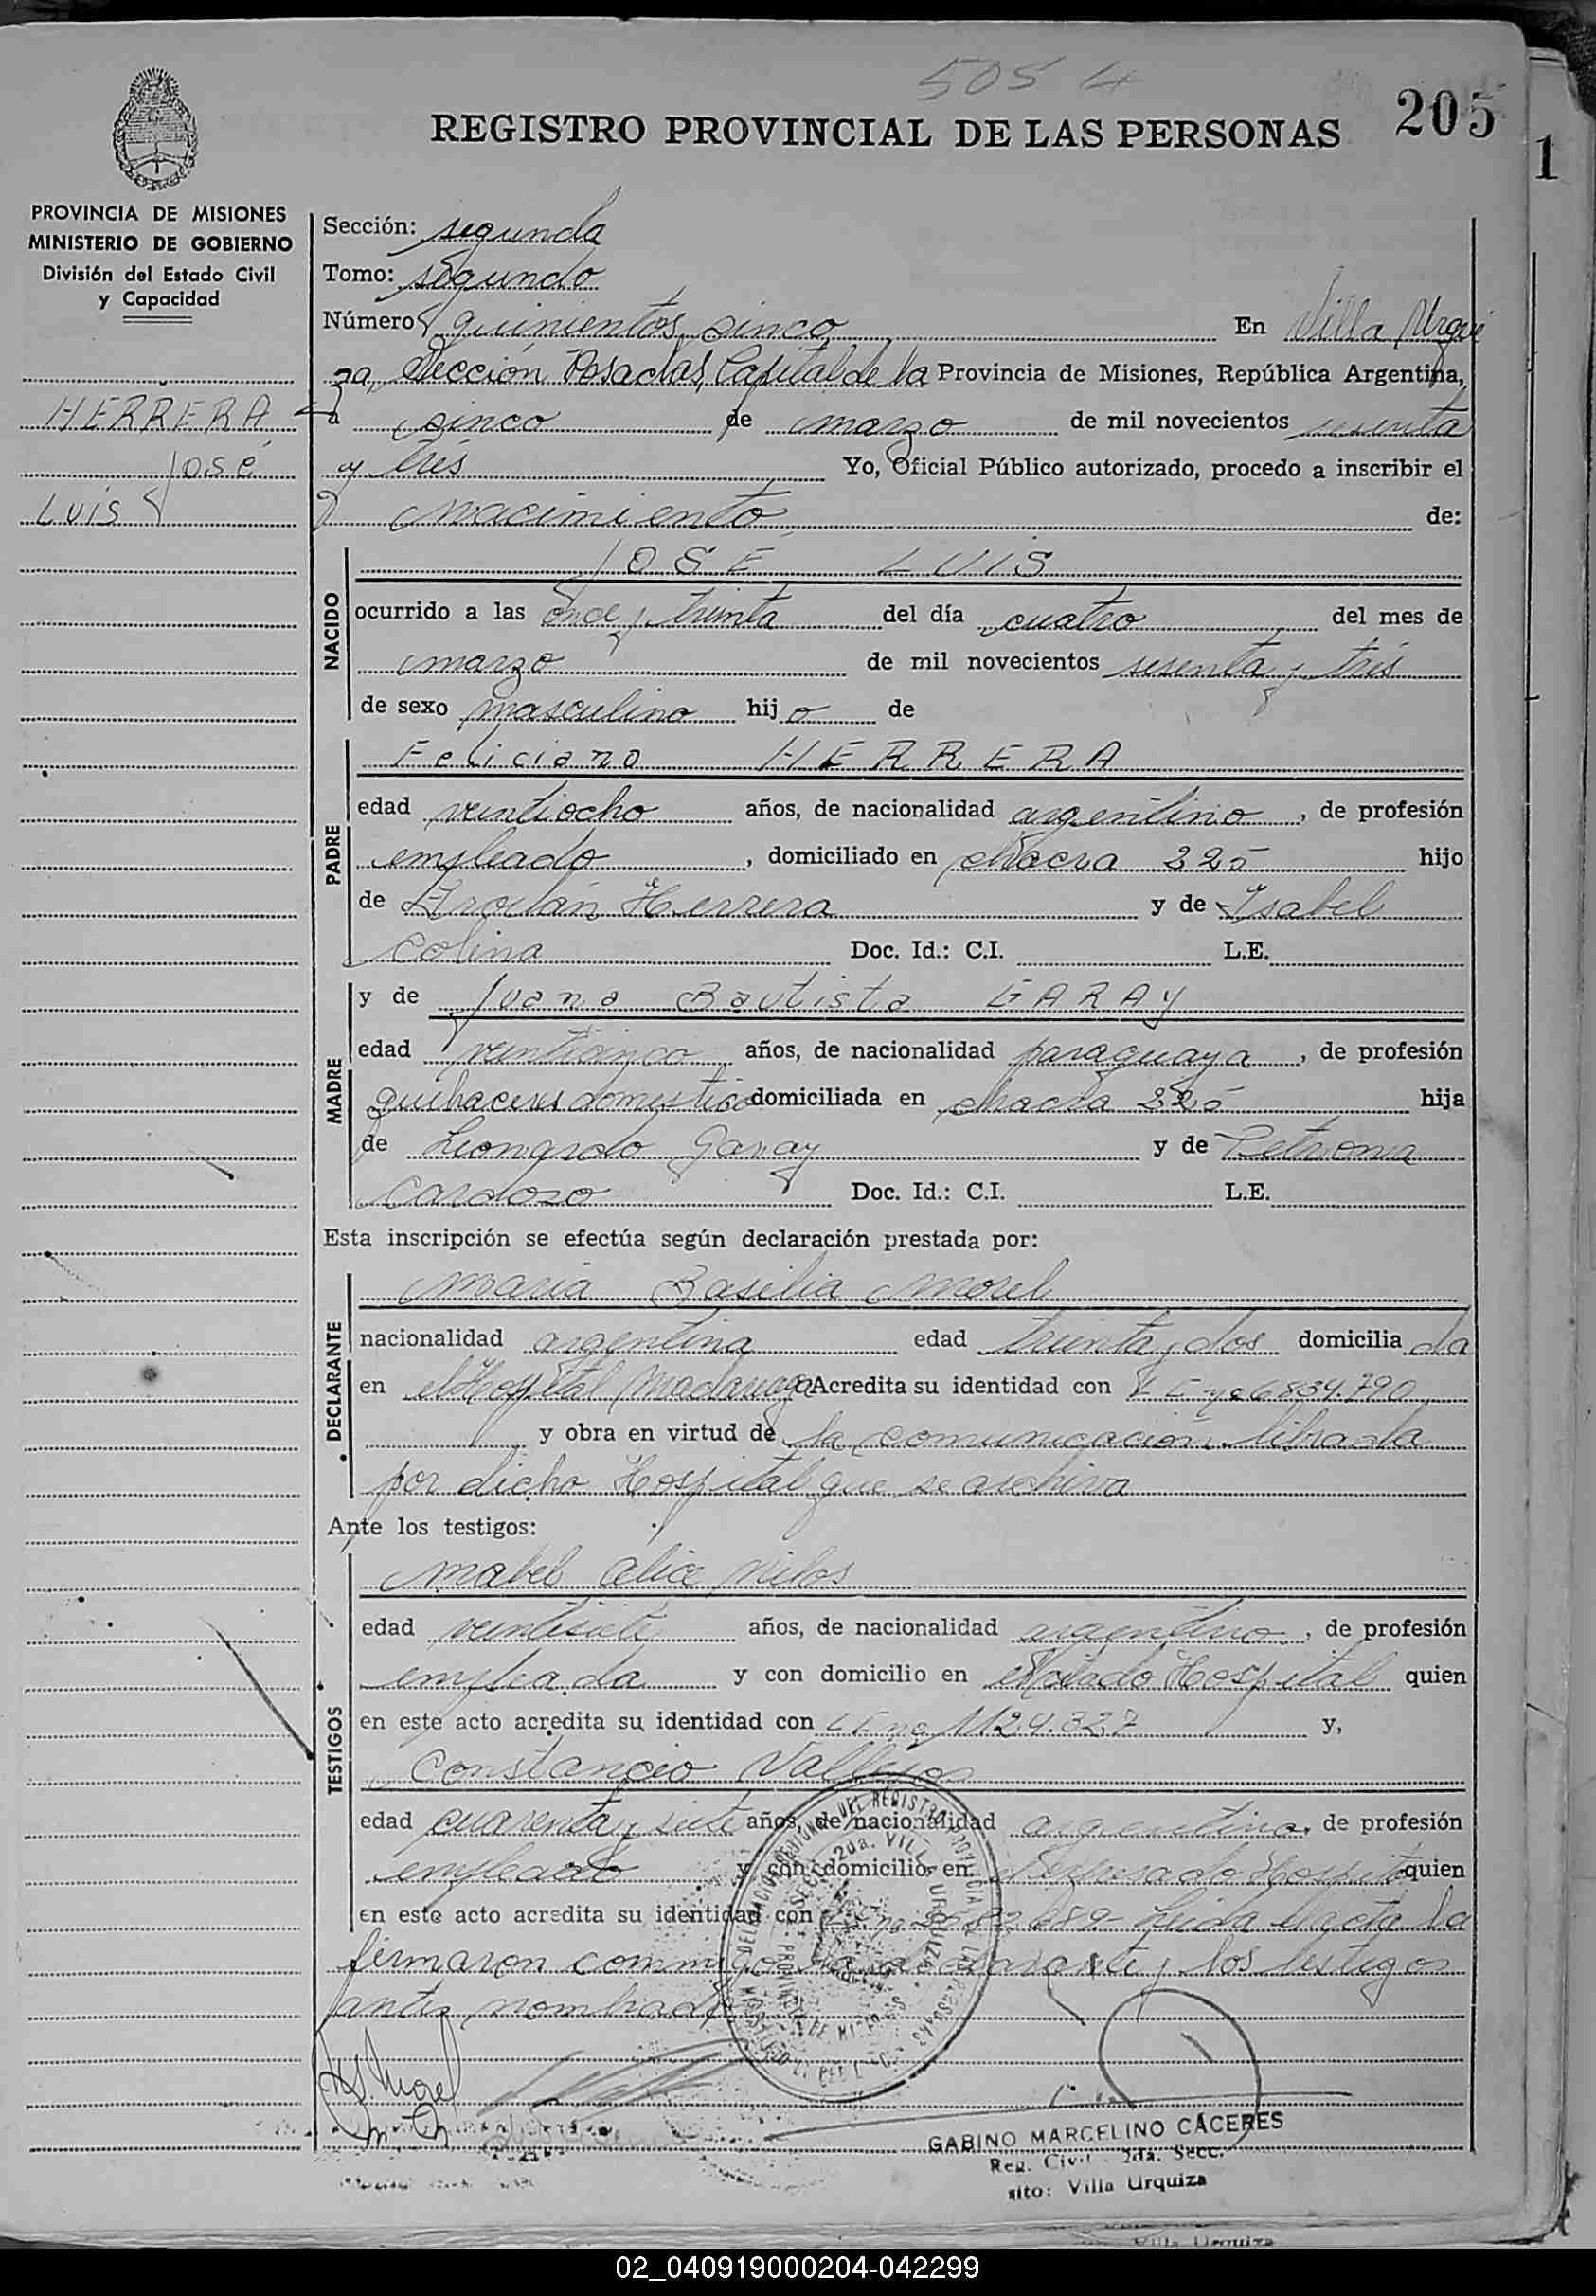 505 4
REGISTRO PROVINCIAL DE LAS PERSONAS
205
1
PROVINCIA DE MISIONES
MINISTERIO DE GOBIERNO
División del Estado Civil
y Capacidad
HERRERA
José
Luis
Sección: segunda
Tomo: segundo
Número quinientos sinco En Villa Urqui
za, Sección Posadas, Capital de la Provincia de Misiones, República Argentina,
a sinco de marzo de mil novecientos sesenta
y trés Yo, Oficial Público autorizado, procedo a inscribir el
nacimiento de:
NACIDO
JOSE LUIS
ocurrido a las once y treinta del día cuatro del mes de
marzo de mil novecientos sesenta y trés
de sexo masculino hijo de
PADRE
Feliciano HERRERA
edad veintiocho años, de nacionalidad argentino, de profesión
empleado, domiciliado en chacra 225 hijo
de Herrera y de Ysabel
Colina Doc. Id.: C.I. L.E.
MADRE
y de Juana Bautista GARAY
edad veinticinco años, de nacionalidad paraguaya, de profesión
quehaceres domestico domiciliada en chacra 225 hija
de Leonardo Garay y de Petrona
Cardozo Doc. Id.: C.I. L.E.
Esta inscripción se efectúa según declaración prestada por:
DECLARANTE
Maria Basilia Morel
nacionalidad argentina edad treinta y dos domiciliada
en el Hospital Madariaga Acredita su identidad con 6834.790
y obra en virtud de la comunicación librada
por dicho Hospital que se archiva
Ante los testigos:
TESTIGOS
Mabel Alice
edad veintisiete años, de nacionalidad argentino, de profesión
empleada y con domicilio en Hospital quien
en este acto acredita su identidad con 1124.327 y,
Constancio Vallejos
edad cuarenta y siete años, de nacionalidad argentino, de profesión
empleado y con domicilio en Hospital quien
en este acto acredita su identidad con Leida el acta la
firmaron conmigo la declarante y los testigos
antes nombrados
GABINO MARCELINO CACERES
Reg. Civil 2da. Secc.
sito: Villa Urquiza
Villa Urquiza
02_040919000204-042299